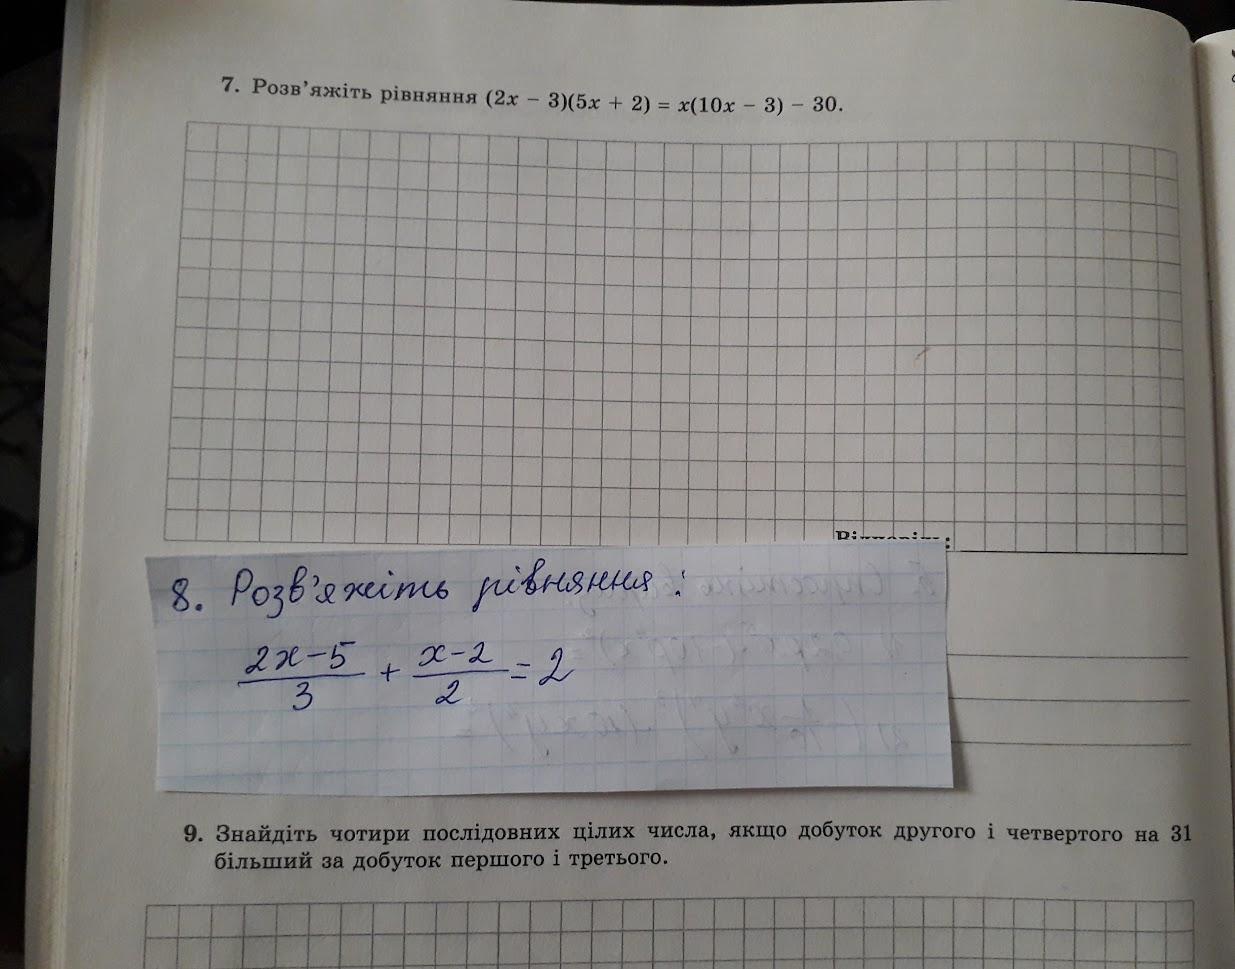 7. Розв’яжіть рівняння (2x − 3)(5x + 2) = x(10x − 3) − 30.
8. Розв'яжіть рівняння:
2x-5/3 + x-2/2 = 2
9. Знайдіть чотири послідовних цілих числа, якщо добуток другого і четвертого на 31
більший за добуток першого і третього.